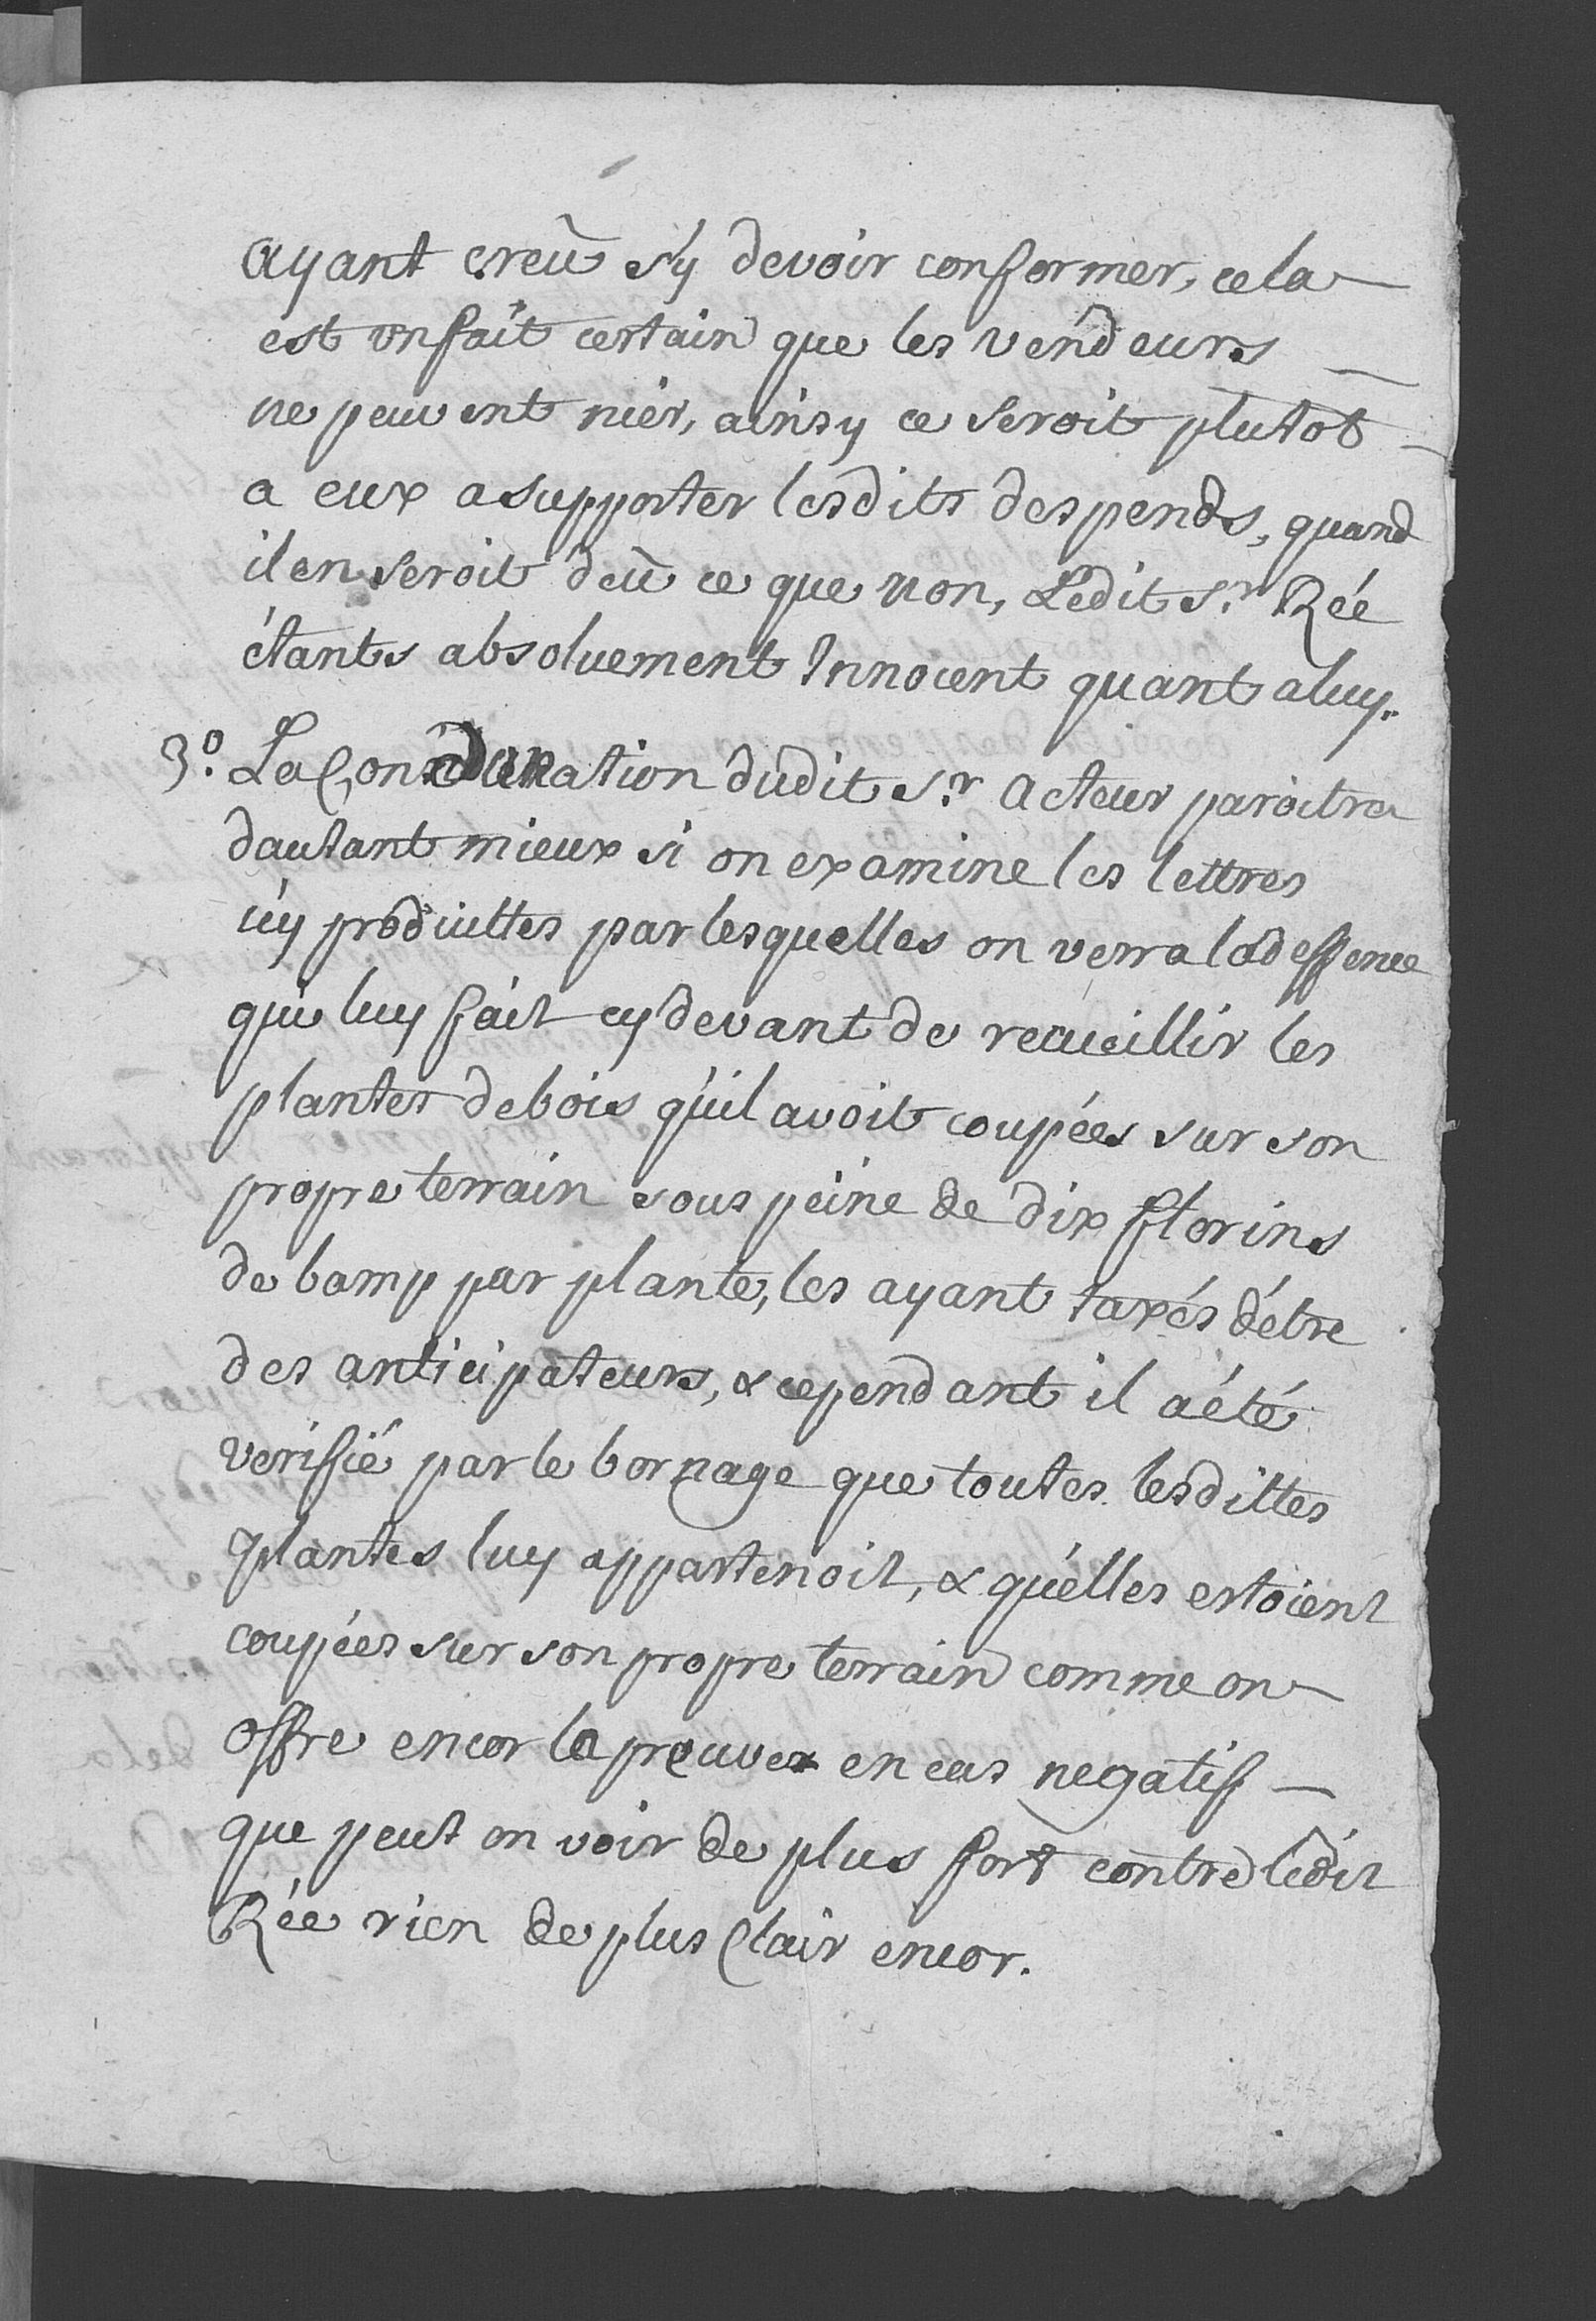 ayant creû s'y devoir conformer, cela
est un fait certain que les vendeurs
ne peuvent nier, ainsy ce seroit plutot
a eux a supporter lesdits despends, quand
il en seroit deû ce que non, Ledit Sr. Rée
étants absoluement Innocent quant a luy.
3o. La dudit Sr. acteur paroitra
dautant mieux si on examine les lettres
icy produittes par lesquelles on verra la deffence
qui luy fait cy devant de recueillir les
plantes de bois qu'il avoit coupées sur son
propre terrain sous peine de dix florins
de bamp par plante, les ayant taxés d'étre
des anticipateurs, & cependant il a été
verifié par le bornage que toutes lesdittes
plantes luy appartenoit, & qu'elles estoient
coupées sur son propre terrain comme on
offre encor la preuve en cas negatif
que peut on voir de plus fort contre ledit
Rée rien de plus Clair encor.